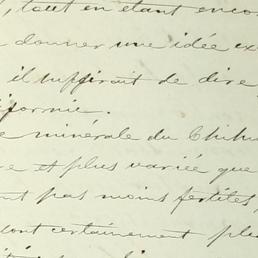 , tout en étant enco
donner une idée ex
il suffirait de dire
ifornie.
e minérale du Chihu
re et plus variée que
nt pas moins fertiles,
dont certainement plu